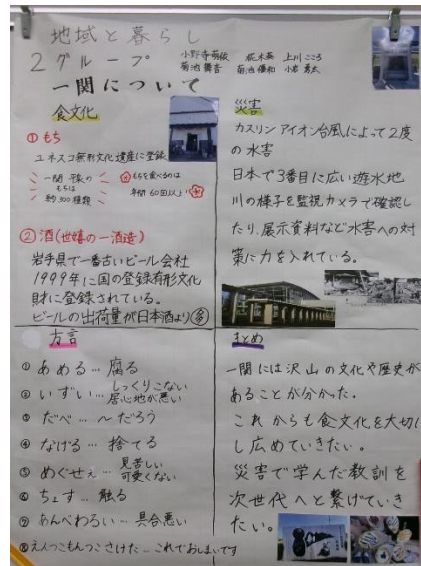 地域と暮らし
2グループ
小野寺萌依 上川こころ
菊池優和
一関について
食文化
① もち
ユネスコ無形文化遺産に登録
一関・平泉の
もちは
約300種類
もちを食べるのは
年間60回以上
② 酒(世嬉の一酒造)
岩手県で一番古いビール会社
1999年に国の登録有形文化
財に登録されている。
ビールの出荷量が日本酒より多
災害
カスリン アイオン台風によって2度
の水害
日本で3番目に広い遊水地
川の様子を監視カメラで確認し
たり、展示資料など水害への対
策に力を入れている。
方言
① あめる… 腐る
② いずい… しっくりこない
居心地が悪い
③ だべ… 〜だろう
④ なげる… 捨てる
⑤ めぐせぇ… 見苦しい
可愛くない
⑥ ちょす… 触る
⑦ あんべわるい… 具合悪い
⑧ えんつこもんつこさけた… これでおしまいです
まとめ
一関には沢山の文化や歴史が
あることが分かった。
これからも食文化を大切に
し広めていきたい。
災害で学んだ教訓を
次世代へと繋げていき
たい。